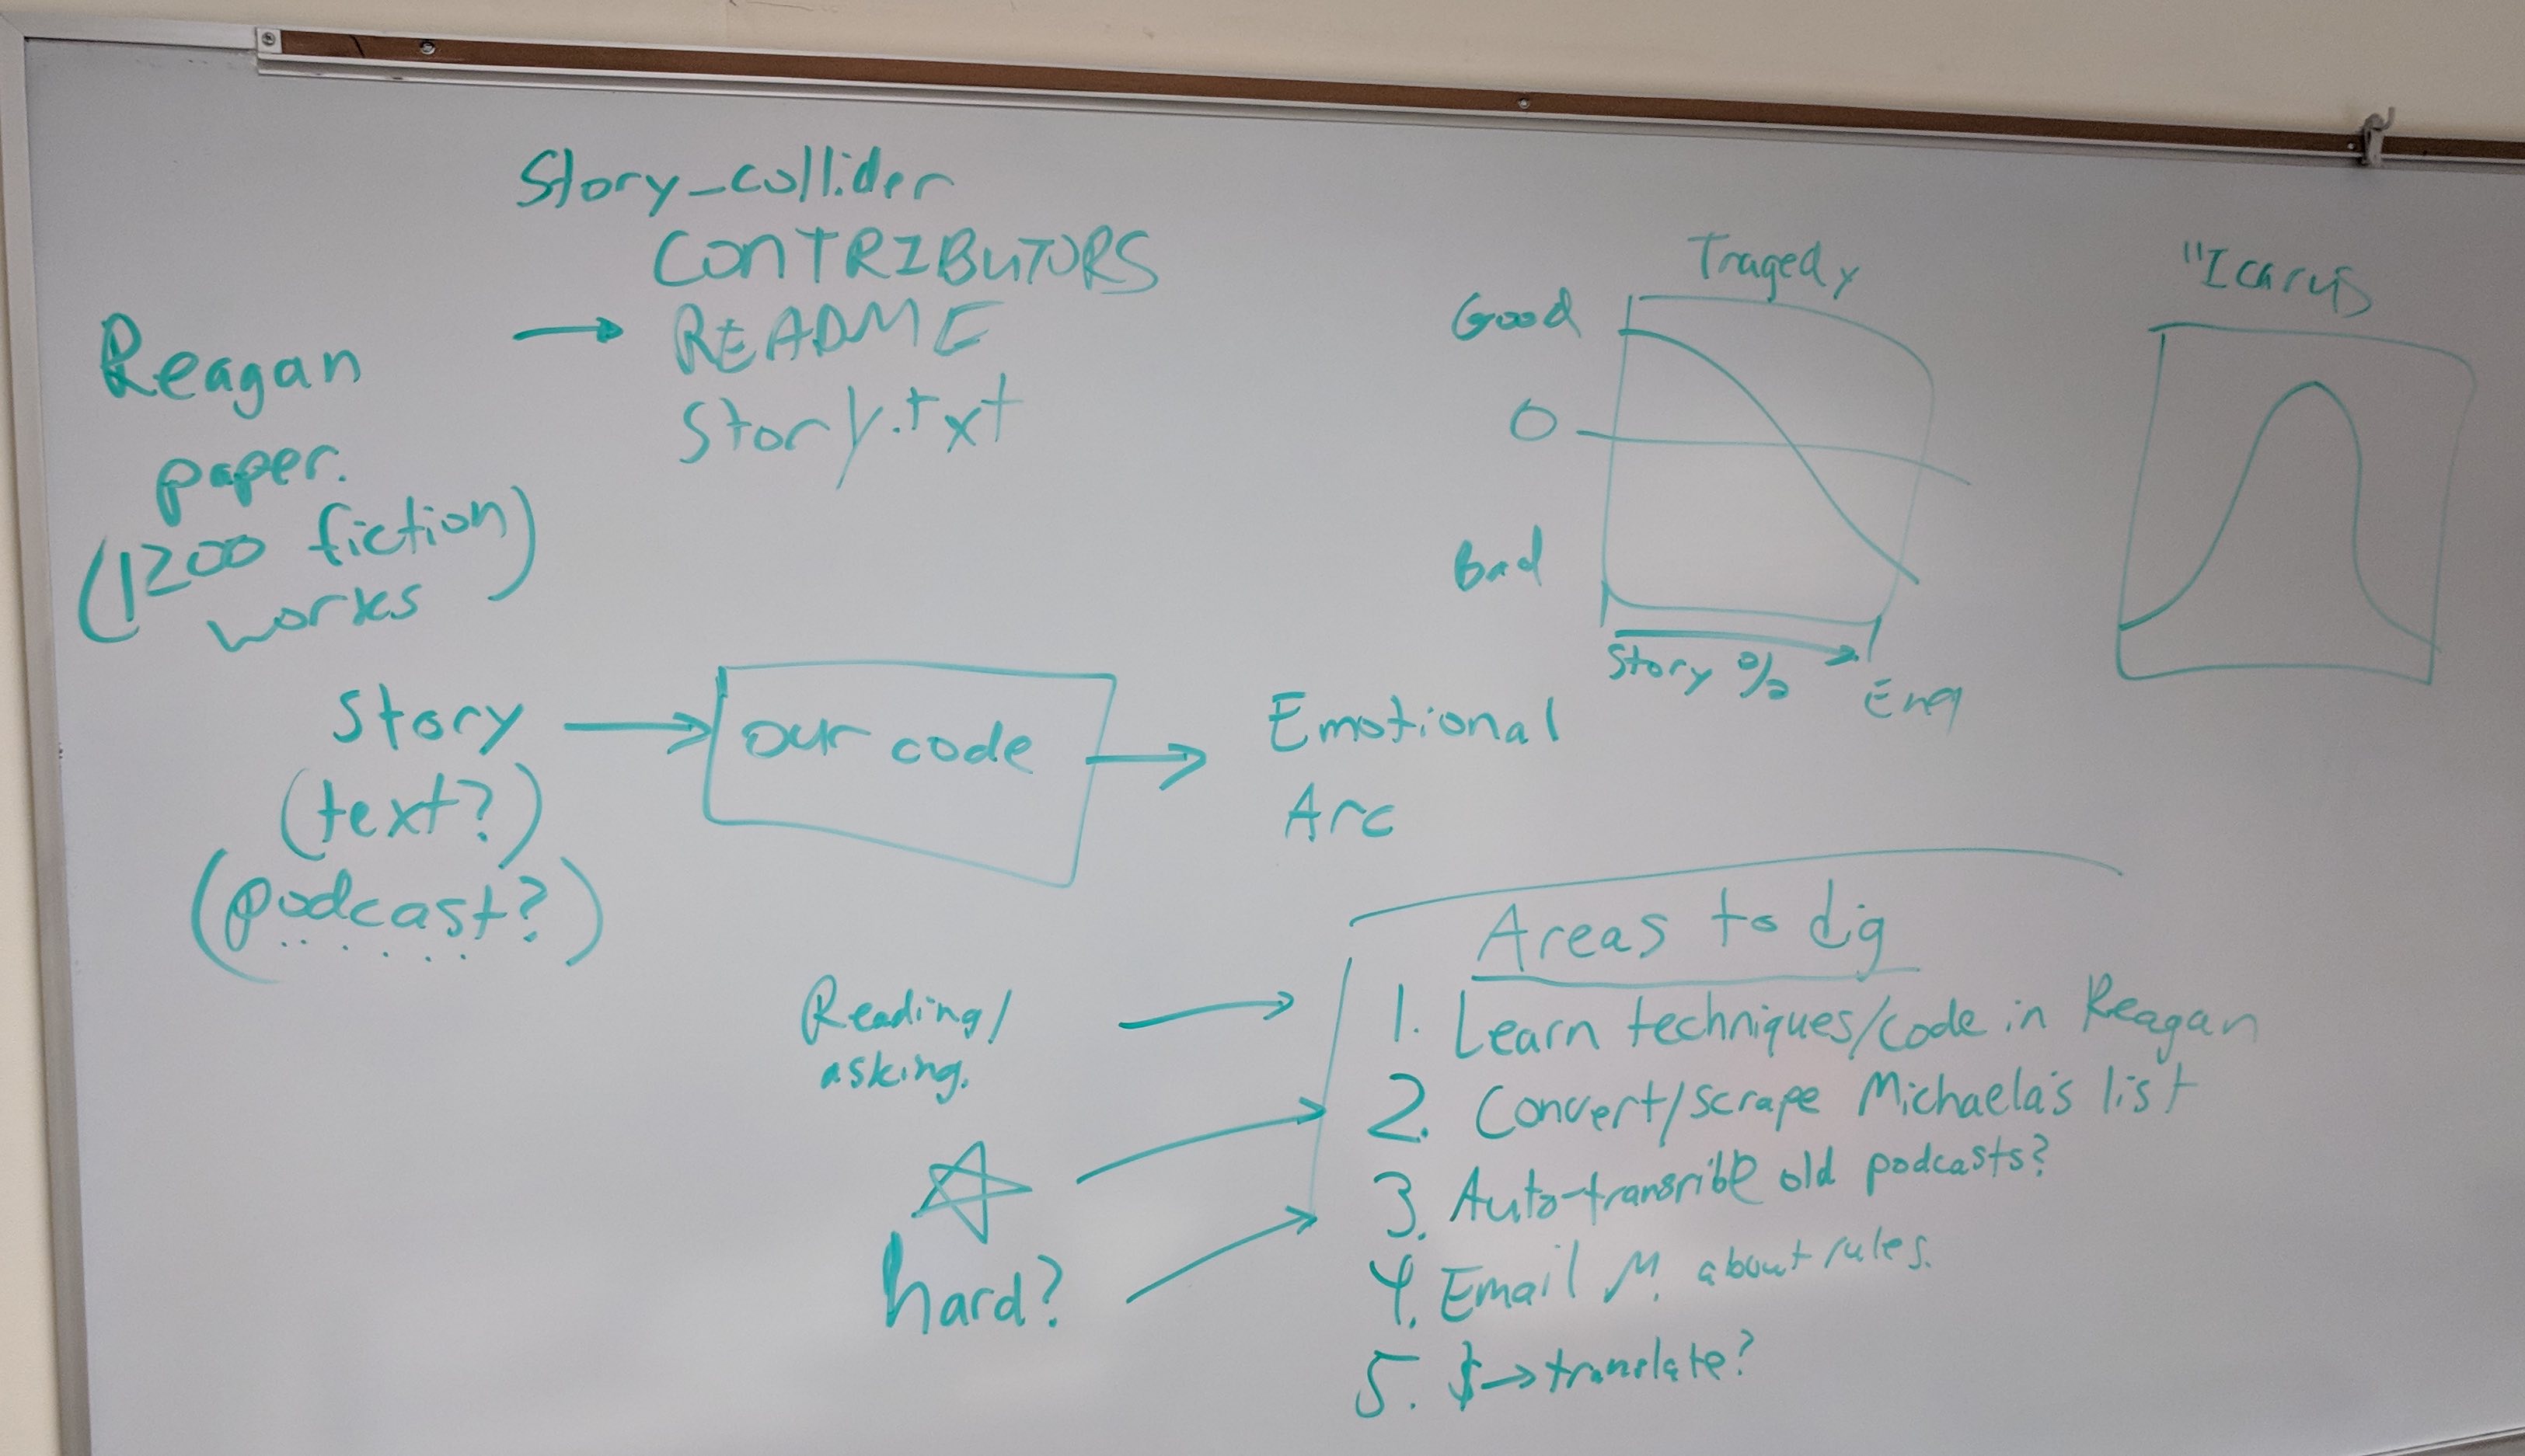 Story_collider
CONTRIBUTORS
README
Story.txt
Reagan
paper.
(1200 fiction)
works
Tragedy
Good
O
Bad
Story %
End
"Icarus
Story
(text?)
(podcast?)
our code
Emotional
Arc
Reading/
asking.
hard?
Areas to dig
1. Learn techniques/code in Reagan
2. Convert/scrape Michaela's list
3. Auto-transribe old podcasts?
4. Email M. about rules.
5. $→translate?